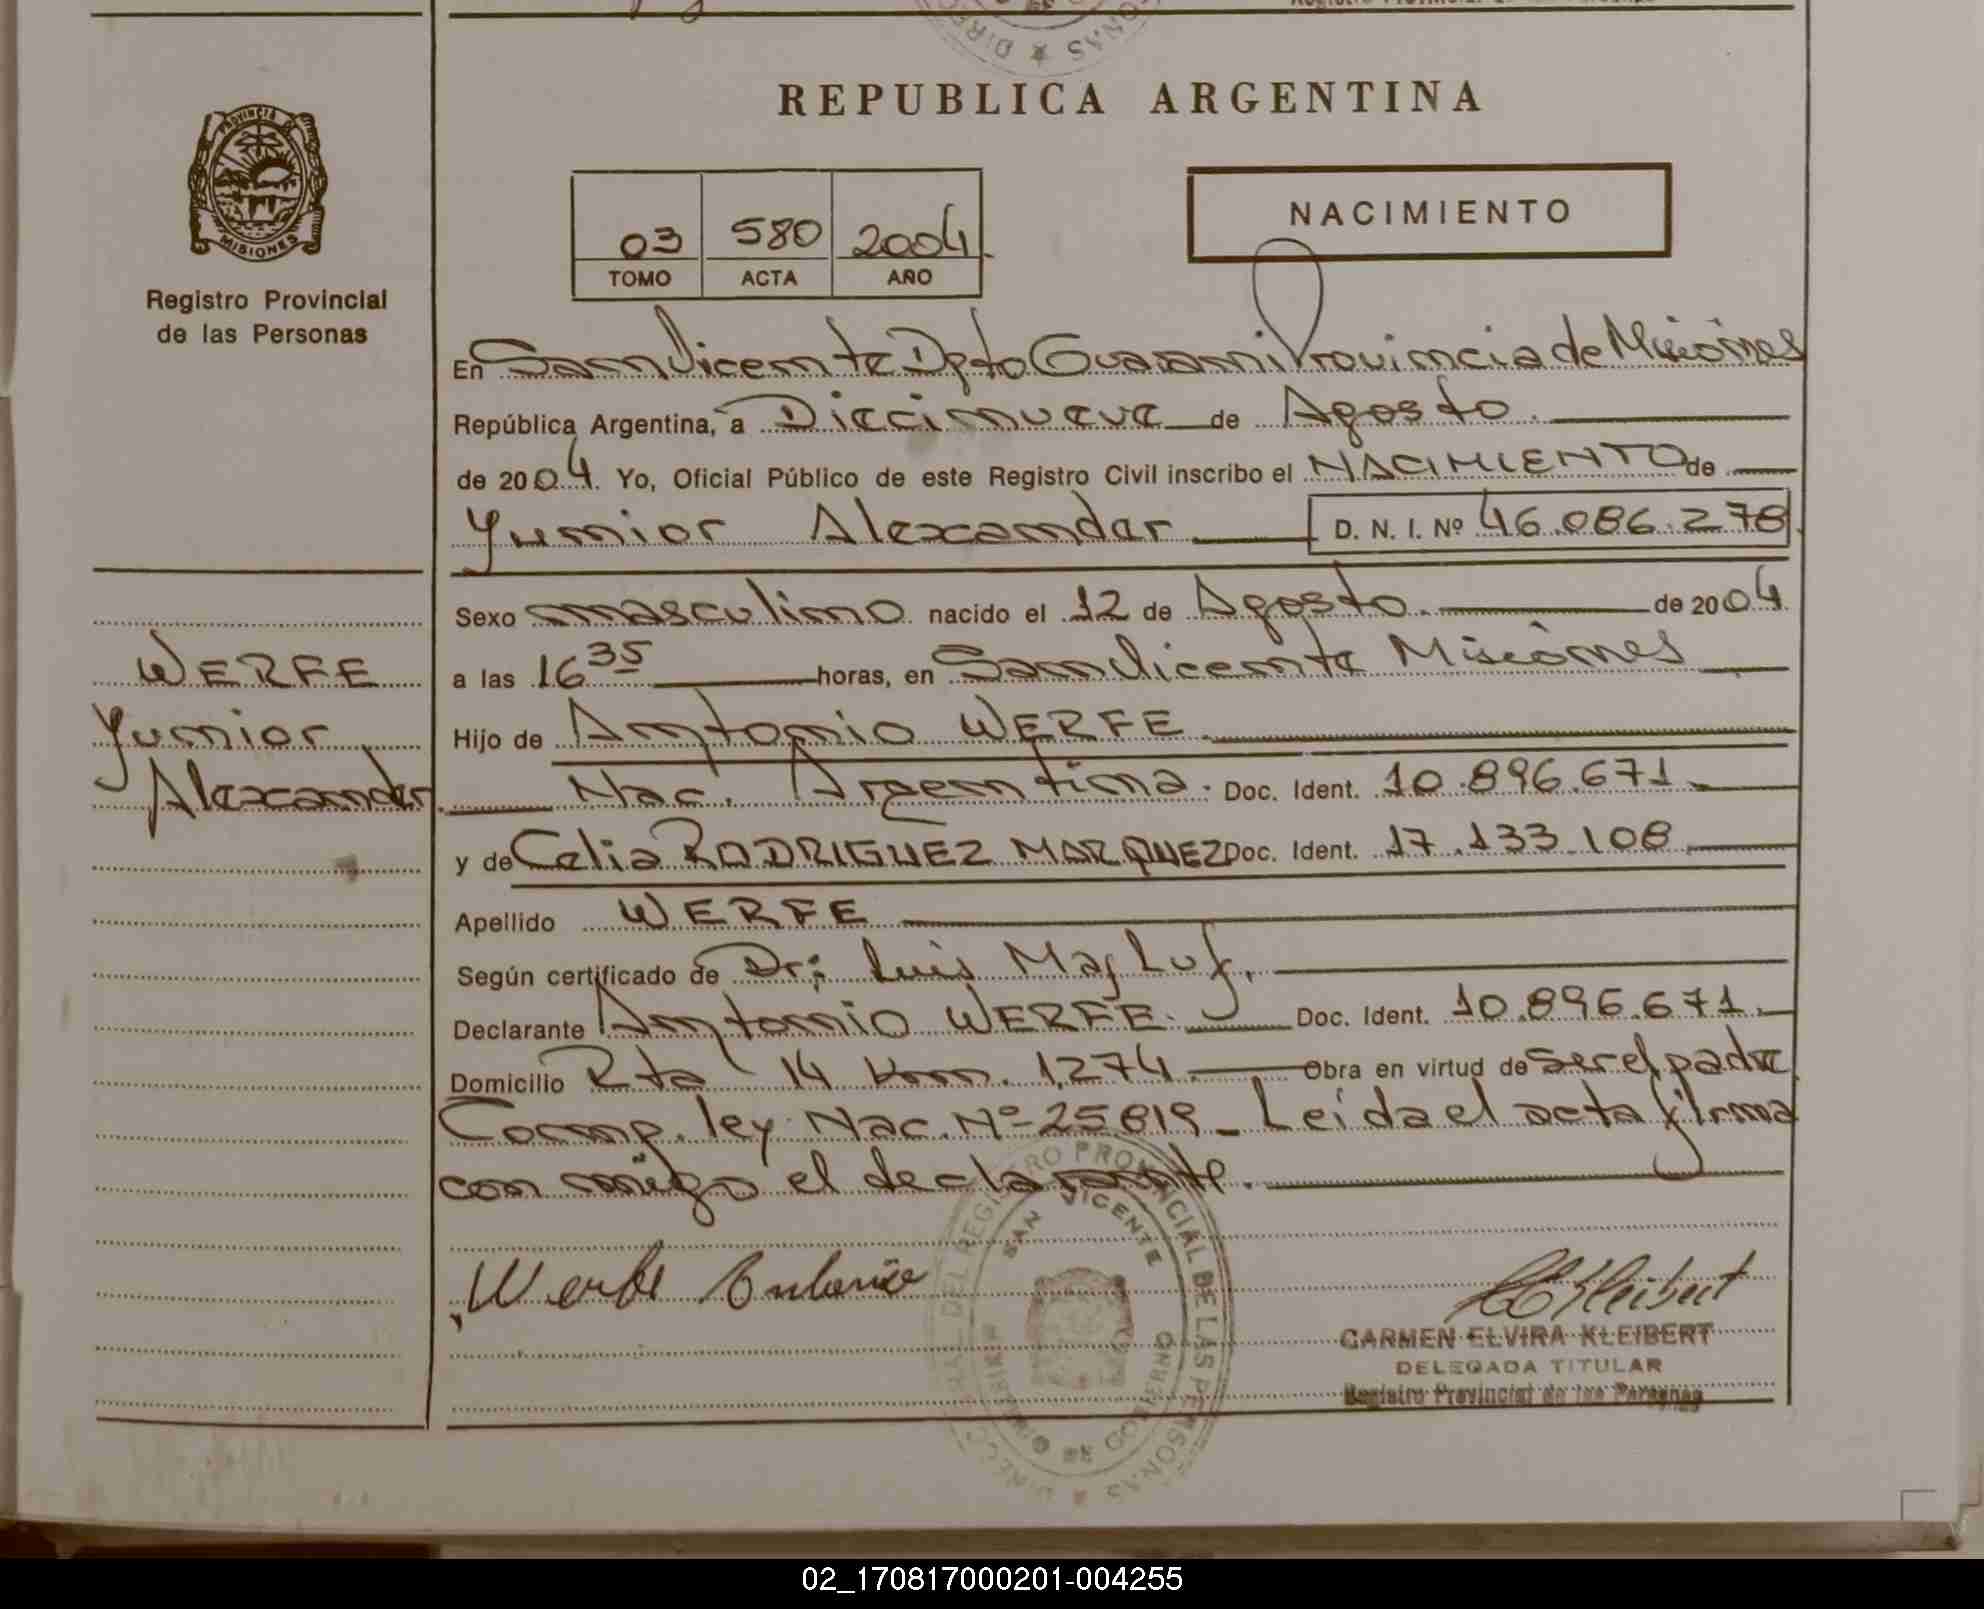 REPUBLICA ARGENTINA
PROVINCIA DE
MISIONES
Registro Provincial
de las Personas
03 580 2004
TOMO ACTA AÑO
NACIMIENTO
En San Vicente Dpto Guarani Provincia de Misiones
República Argentina, a Diecinueve de Agosto
de 2004. Yo, Oficial Público de este Registro Civil inscribo el NACIMIENTO de
Yunior Alexander D. N. I. Nº 46.086.278
Sexo masculino nacido el 12 de Agosto. de 2004
a las 16 35 horas, en San Vicente Misiones
Hijo de Antonio WERFE
Nac. Argentina. Doc. Ident. 10.896.671
y de Celia RODRIGUEZ MARQUEZ Doc. Ident. 17.133.108
Apellido WERFE
Según certificado de Dr: Luis Masluf.
Declarante Antonio WERFE. Doc. Ident. 10.896.671
Domicilio Rta 14 Km. 1,274. Obra en virtud de ser el padre
Comp. ley Nac. Nº 25819_ Leida el acta firma
con migo el declarante.
WERFE
Yunior
Alexander
Werfe Antonio
CARMEN ELVIRA KLEIBERT
DELEGADA TITULAR
Registro Provincial de las Personas
DEL REGISTRO PROVINCIAL DE LAS PERSONAS
SAN VICENTE
02_170817000201-004255